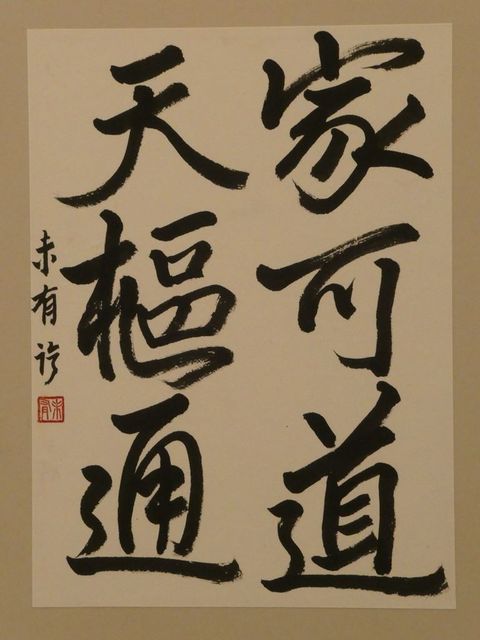 家可道
天樞通
未有
未有